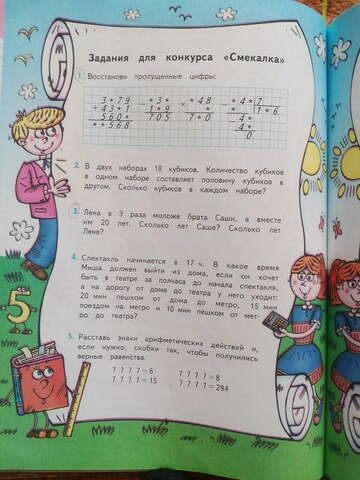 Задания для конкурса «Смекалка»
1. Восстанови пропущенные цифры:
3*79 − *3* × *48 − *4* 7
+ 43*1 1*9 * * 1*6
560* 705 7*0 4*
**568 4*
0
2. В двух наборах 18 кубиков. Количество кубиков
в одном наборе составляет половину кубиков в
другом. Сколько кубиков в каждом наборе?
3. Лена в 3 раза моложе брата Саши, а вместе
им 20 лет. Сколько лет Саше? Сколько лет
Лене?
4. Спектакль начинается в 17 ч. В какое время
Миша должен выйти из дома, если он хочет
быть в театре за полчаса до начала спектакля,
а на дорогу от дома до театра у него уходит:
20 мин пешком от дома до метро, 15 мин
поездом на метро и 10 мин пешком от мет-
ро до театра?
5
5. Расставь знаки арифметических действий и,
если нужно, скобки так, чтобы получились
верные равенства.
7 7 7 7 = 6 7 7 7 7 = 8
7 7 7 7 = 15 7 7 7 7 = 294